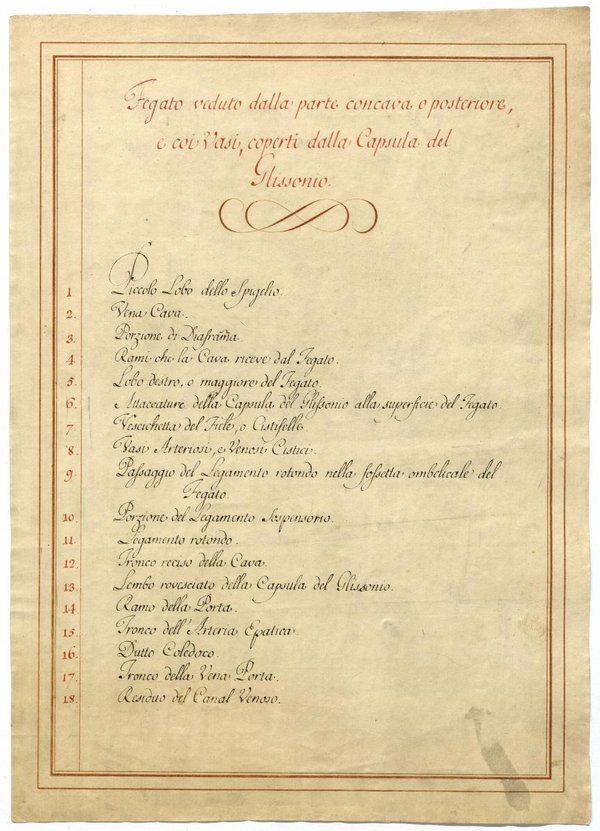 Fegato veduto dalla parte concava o posteriore,
e coi Vasi, coperti dalla Capsula del
Glissonio.
1 Piccolo Lobo dello Spigelio.
2. Vena Cava.
3. Porzione di Diafram̃a.
4. Rami che la Cava riceve dal Fegato.
5. Lobo destro, o maggiore del Fegato.
6. Attaccature della Capsula del Glissonio alla superficie del Fegato.
7. Vescichetta del Fiele, o Cistifelle
8. Vasi Arteriosi, e Venosi Cistici.
9. Passaggio del Legamento rotondo nella fossetta ombelicale del
Fegato.
10. Porzione del Legamento Sospensorio.
11. Legamento rotondo.
12. Tronco reciso della Cava.
13. Lembo rovesciato della Capsula del Glissonio.
14 Ramo della Porta.
15. Tronco dell'Arteria Epatica
16. Dutto Coledoco.
17. Tronco della Vena Porta.
18. Residuo del Canal Venoso.